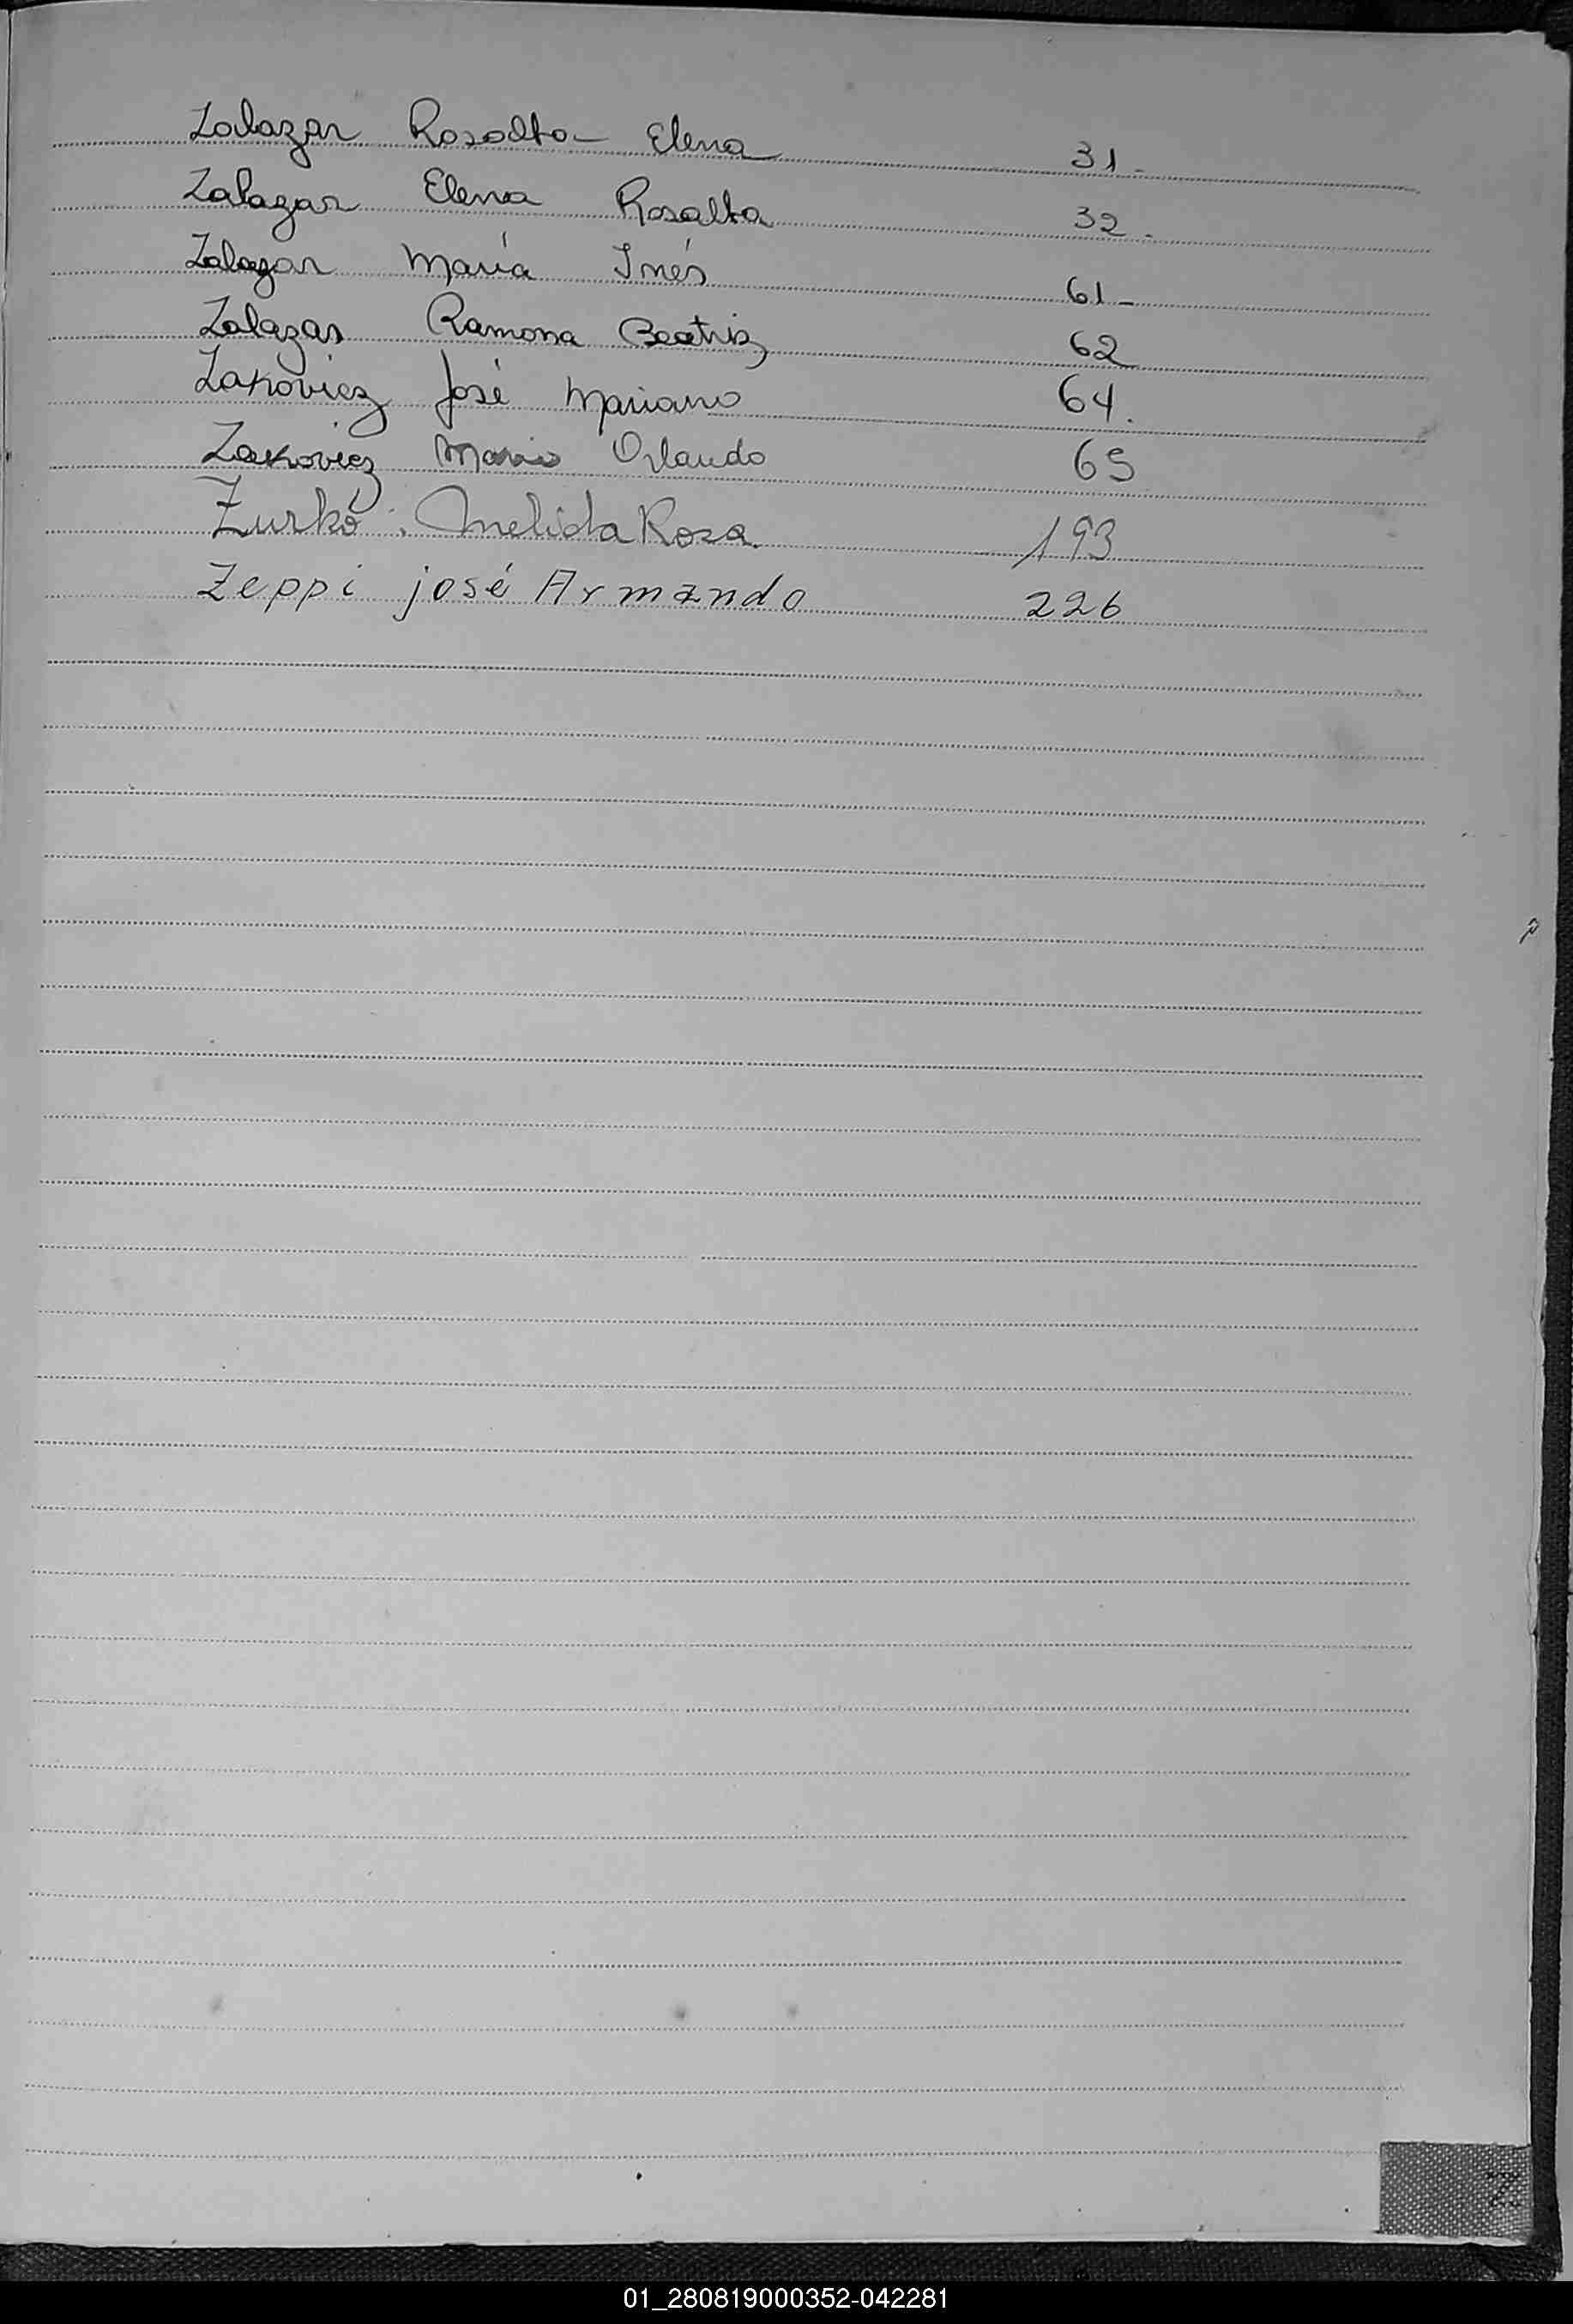 Zalazar Rosalba Elena 31-
Zalazar Elena Rosalba 32-
Zalazar María Inés 61-
Zalazar Ramona Beatriz 62
Zakovicz José Mariano 64.
Zakovicz Mario Orlando 65
Zurkó. Amelida Rosa. 193
Zeppi josé Armando 226
Z
01_280819000352-042281